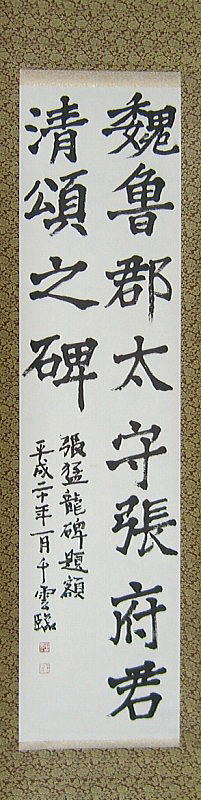 魏魯郡太守張府君
清頌之碑
張猛龍碑題額
平成二十年一月千雲臨